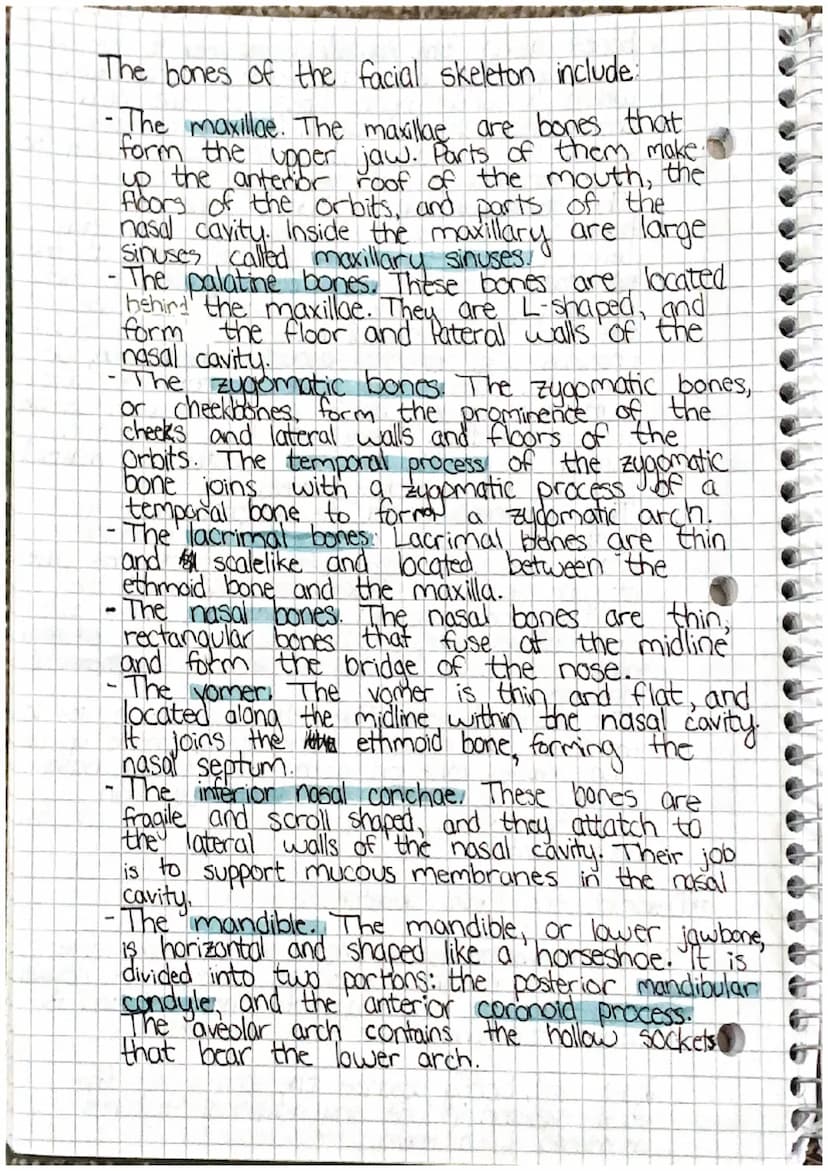 The bones of the facial skeleton include:
- The maxillae. The maxillae are bones that
form the upper jaw. Parts of them make
up the anterior roof of the mouth, the
floors of the orbits, and parts of the
nasal cavity. Inside the maxillary are large
sinuses called maxillary sinuses.
- The palatine bones. These bones are located
behind the maxillae. They are L-shaped, and
form the floor and lateral walls of the
nasal cavity.
- The zygomatic bones. The zygomatic bones,
or cheekbones, form the prominence of the
cheeks and lateral walls and floors of the
orbits. The temporal process of the zygomatic
bone joins with a zygomatic process of a
temporal bone to form a zygomatic arch.
- The lacrimal bones. Lacrimal bones are thin
and scalelike and located between the
ethmoid bone and the maxilla.
- The nasal bones. The nasal bones are thin,
rectangular bones that fuse at the midline
and form the bridge of the nose.
- The vomer. The vomer is thin and flat, and
located along the midline within the nasal cavity.
It joins the ethmoid bone, forming the
nasal septum.
- The inferior nasal conchae. These bones are
fragile and scroll shaped, and they attatch to
the lateral walls of the nasal cavity. Their job
is to support mucous membranes in the nasal
cavity.
- The mandible. The mandible, or lower jawbone,
is horizontal and shaped like a horseshoe. It is
divided into two portions: the posterior mandibular
condyle, and the anterior coronoid process.
The aveolar arch contains the hollow sockets
that bear the lower arch.